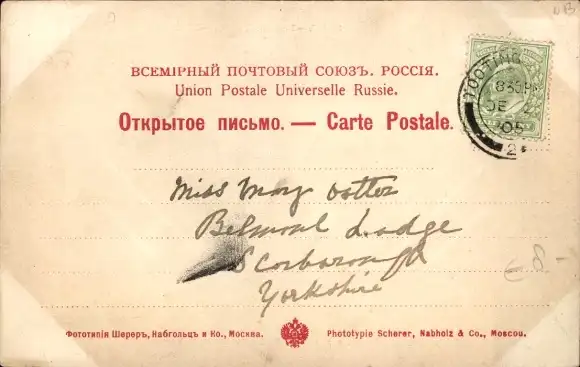 ВСЕМІРНЫЙ ПОЧТОВЫЙ СОЮЗЪ. РОССІЯ.
Union Postale Universelle Russie.
Открытое письмо. — Carte Postale.
TOOTING
8 30 PM
DE 2
05
2
Miss May Votter
Belmont Lodge
Scorborough
Yorkshire
€ 8.-
Фототипія Шереръ, Набгольцъ и Ко., Москва.
Phototypie Scherer, Nabholz & Co., Moscou.